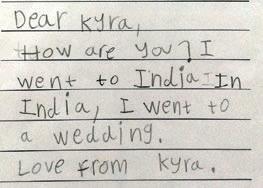 Dear Kyra,
How are you? I
went to India In
India, I went to
a wedding.
Love from Kyra.